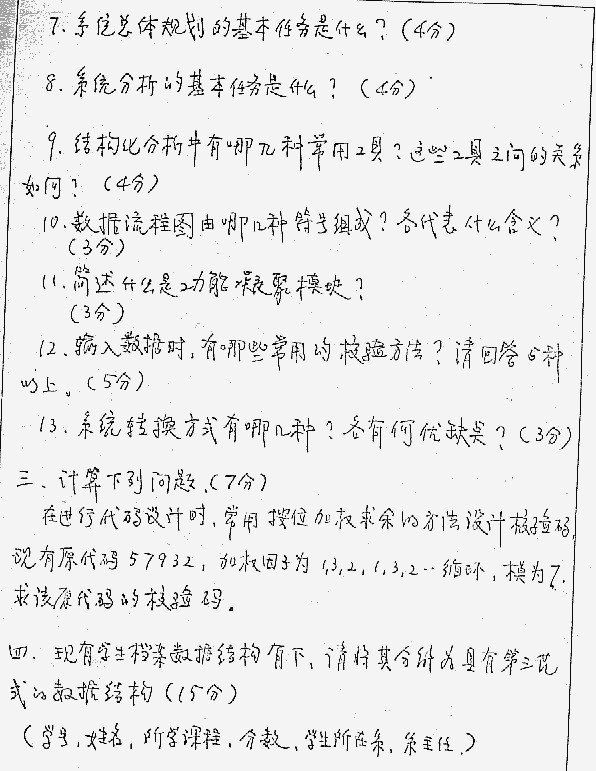 7. 系统总体规划的基本任务是什么？(4分)
8. 系统分析的基本任务是什么？(4分)
9. 结构化分析中有哪几种常用工具？这些工具之间的关系
如何？(4分)
10. 数据流程图由哪几种符号组成？各代表什么含义？
(3分)
11. 简述什么是功能凝聚模块？
(3分)
12. 输入数据时，有哪些常用的校验方法？请回答5种
以上。(5分)
13. 系统转换方式有哪几种？各有何优缺点？(3分)
三、计算下列问题、(7分)
在进行代码设计时，常用按位加权求余的方法设计校验码，
现有原代码57932，加权因子为1,3,2,1,3,2…循环，模为7.
求该原代码的校验码。
四、现有学生档案数据结构有下，请将其分解为具有第三范
式的数据结构(15分)
(学号，姓名，所学课程，分数，学生所在系，系主任.)